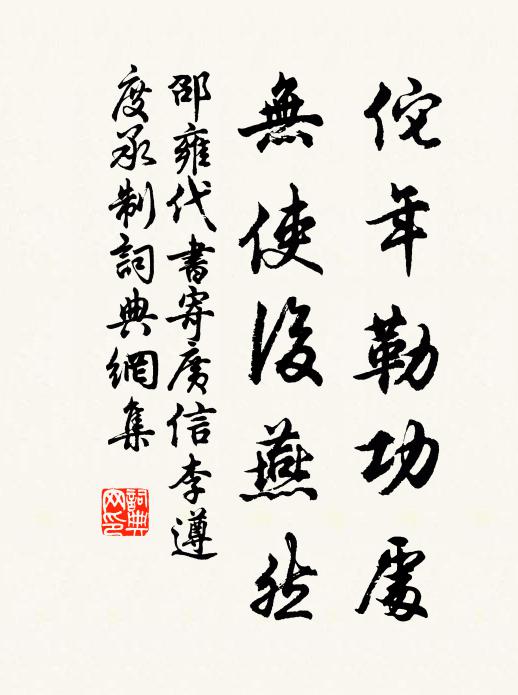 佗年勒功處
無使後燕然
邵雍代書寄廣信李遵
度承制詞典網集
詞典网印